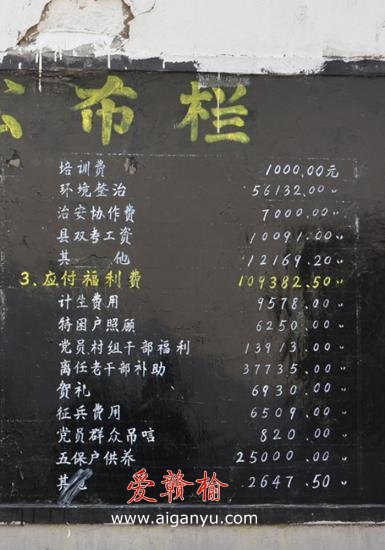 公布栏
培训费 1000.00元
环境整治 56132.00〃
治安协作费 7000.00〃
县双考工资 10091.00〃
其 他 12169.20〃
3.应付福利费 109382.50〃
计生费用 9578.00〃
特困户照顾 6250.00〃
党员村组干部福利 13913.00〃
离任老干部补助 37735.00〃
贺礼 6930.00〃
征兵费用 6509.00〃
党员群众吊唁 820.00〃
五保户供养 25000.00〃
其 2647.50〃
爱赣榆
www.aiganyu.com